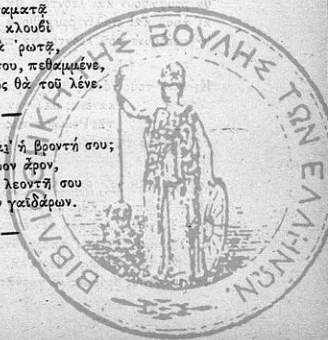 αματᾷ
κλουβὶ
ὰ ᾽ρωτᾷ,
του, πεθαμμένε,
ος θὰ τοῦ λένε.
ἡ βροντή σου;
ον ἆρον,
λεοντῆ σου
γαϊδάρων.
ΒΙΒΛΙΟΘΗΚΗ ΤΗΣ ΒΟΥΛΗΣ ΤΩΝ ΕΛΛΗΝΩΝ